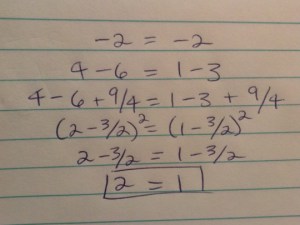 -2 = -2
4 - 6 = 1 - 3
4 - 6 + 9/4 = 1 - 3 + 9/4
(2 - 3/2)² = (1 - 3/2)²
2 - 3/2 = 1 - 3/2
2 = 1